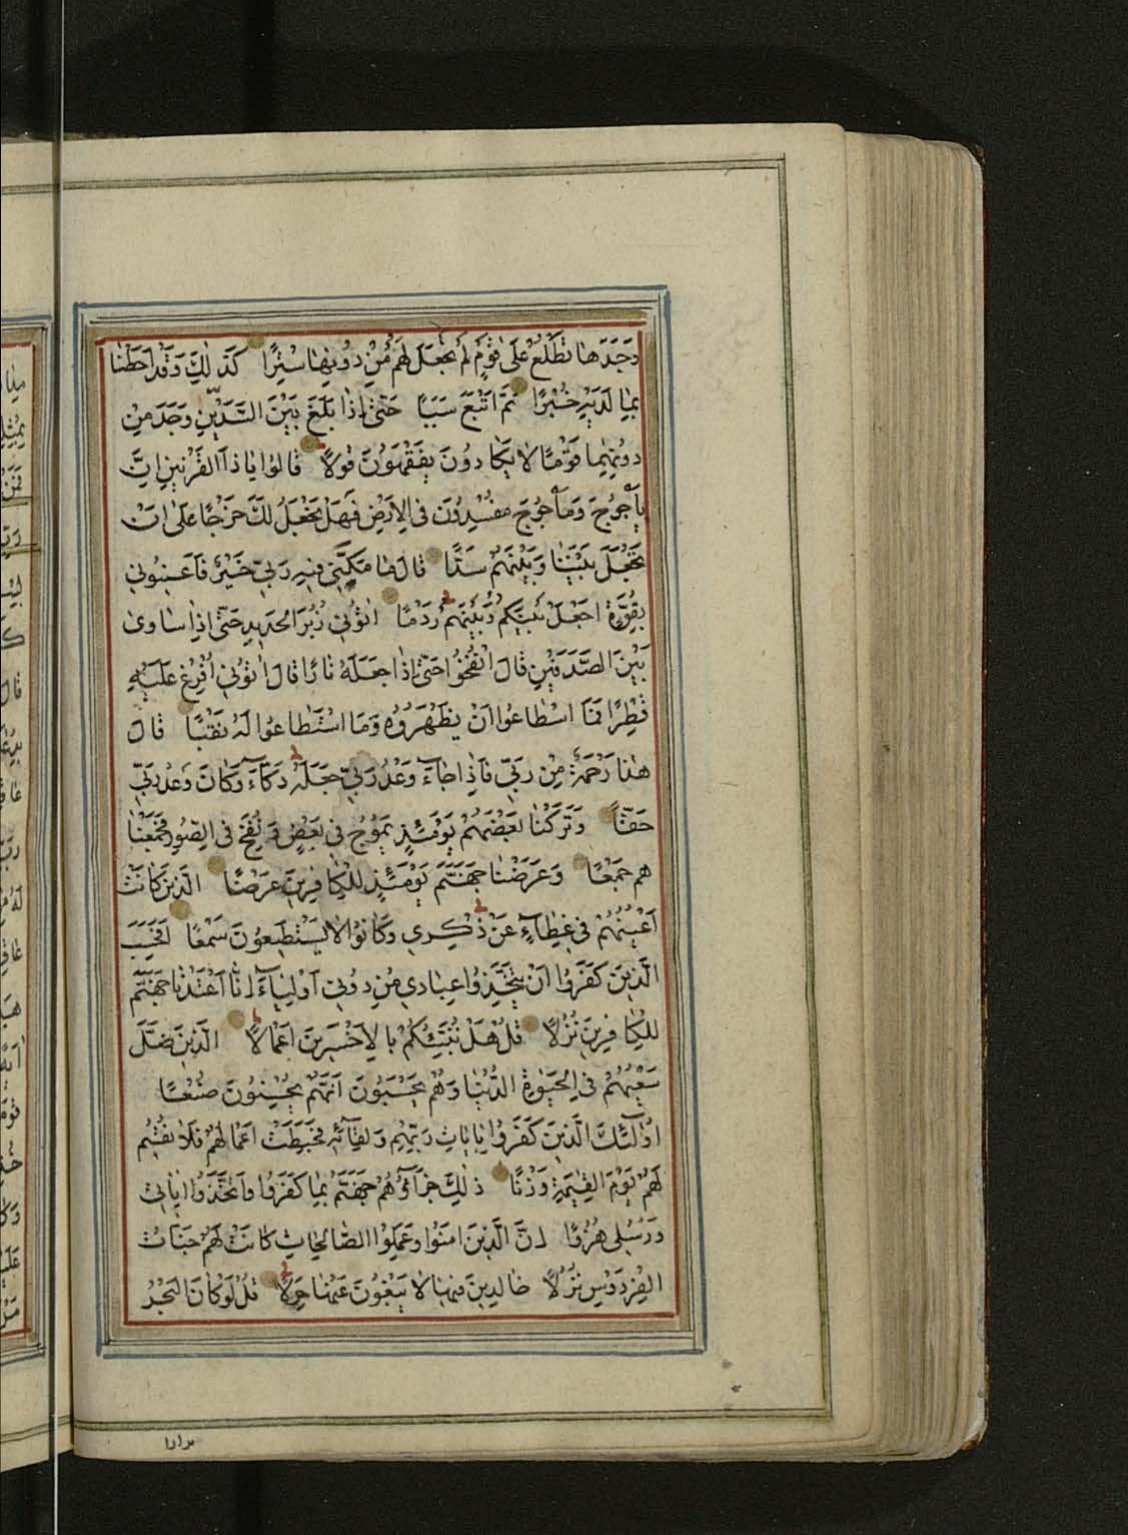 وَجَدَهَا تَطْلُعُ عَلَىٰ قَوْمٍ لَمْ نَجْعَلْ لَهُمْ مِنْ دُونِهَا سِتْرًا كَذَٰلِكَ وَقَدْ اَحَطْنَا
بِمَا لَدَيْهِ خُبْرًا ثُمَّ اَتْبَعَ سَبَبًا حَتّىٰ اِذَا بَلَغَ بَيْنَ السَّدَّيْنِ وَجَدَ مِنْ
دُونِهِمَا قَوْمًا لَا يَكَادُونَ يَفْقَهُونَ قَوْلًا قَالُوا يَا ذَا الْقَرْنَيْنِ اِنَّ
يَأْجُوجَ وَمَأْجُوجَ مُفْسِدُونَ فِى الْاَرْضِ فَهَلْ نَجْعَلُ لَكَ خَرْجًا عَلىٰ اَنْ
تَجْعَلَ بَيْنَنَا وَبَيْنَهُمْ سَدًّا قَالَ مَا مَكَّنِّى فِيهِ رَبِّى خَيْرٌ فَاَعِينُونِى
بِقُوَّةٍ اَجْعَلْ بَيْنَكُمْ وَبَيْنَهُمْ رَدْمًا اٰتُونِى زُبَرَ الْحَدِيدِ حَتّىٰ اِذَا سَاوىٰ
بَيْنَ الصَّدَفَيْنِ قَالَ انْفُخُوا حَتّىٰ اِذَا جَعَلَهُ نَارًا قَالَ اٰتُونِى اُفْرِغْ عَلَيْهِ
قِطْرًا فَمَا اسْطَاعُوا اَنْ يَظْهَرُوهُ وَمَا اسْتَطَاعُوا لَهُ نَقْبًا قَالَ
هٰذَا رَحْمَةٌ مِنْ رَبِّى فَاِذَا جَاءَ وَعْدُ رَبِّى جَعَلَهُ دَكَّاءَ وَكَانَ وَعْدُ رَبِّى
حَقًّا وَتَرَكْنَا بَعْضَهُمْ يَوْمَئِذٍ يَمُوجُ فِى بَعْضٍ وَنُفِخَ فِى الصُّورِ فَجَمَعْنَا
هُمْ جَمْعًا وَعَرَضْنَا جَهَنَّمَ يَوْمَئِذٍ لِلْكَافِرِينَ عَرْضًا الَّذِينَ كَانَتْ
اَعْيُنُهُمْ فِى غِطَاءٍ عَنْ ذِكْرِى وَكَانُوا لَا يَسْتَطِيعُونَ سَمْعًا اَفَحَسِبَ
الَّذِينَ كَفَرُوا اَنْ يَتَّخِذُوا عِبَادِى مِنْ دُونِى اَوْلِيَاءَ اِنَّا اَعْتَدْنَا جَهَنَّمَ
لِلْكَافِرِينَ نُزُلًا قُلْ هَلْ نُنَبِّئُكُمْ بِالْاَخْسَرِينَ اَعْمَالًا الَّذِينَ ضَلَّ
سَعْيُهُمْ فِى الْحَيٰوةِ الدُّنْيَا وَهُمْ يَحْسَبُونَ اَنَّهُمْ يُحْسِنُونَ صُنْعًا
اُولٰئِكَ الَّذِينَ كَفَرُوا بِاٰيَاتِ رَبِّهِمْ وَلِقَائِهِ فَحَبِطَتْ اَعْمَالُهُمْ فَلَا نُقِيمُ
لَهُمْ يَوْمَ الْقِيٰمَةِ وَزْنًا ذٰلِكَ جَزَاؤُهُمْ جَهَنَّمُ بِمَا كَفَرُوا وَاتَّخَذُوا اٰيَاتِى
وَرُسُلِى هُزُوًا اِنَّ الَّذِينَ اٰمَنُوا وَعَمِلُوا الصَّالِحَاتِ كَانَتْ لَهُمْ جَنَّاتُ
الْفِرْدَوْسِ نُزُلًا خَالِدِينَ فِيهَا لَا يَبْغُونَ عَنْهَا حِوَلًا قُلْ لَوْ كَانَ الْبَحْرُ